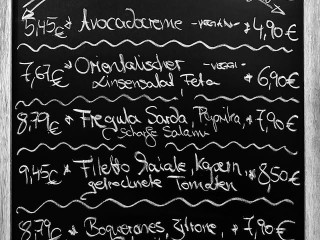 5,45€ * Avocadocreme -vegetar.- * 4,90€
7,67€ * Orientalischer -vegetar.- * 6,90€
Linsensalad, Feta
8,79€ * Fregula Sarda, Paprika, * 7,90€
scharfe Salami
9,45€ * Filetto Maiale, Kapern, * 8,50€
getrocknete Tomaten
8,79€ * Boquerones, Zitrone, * 7,90€